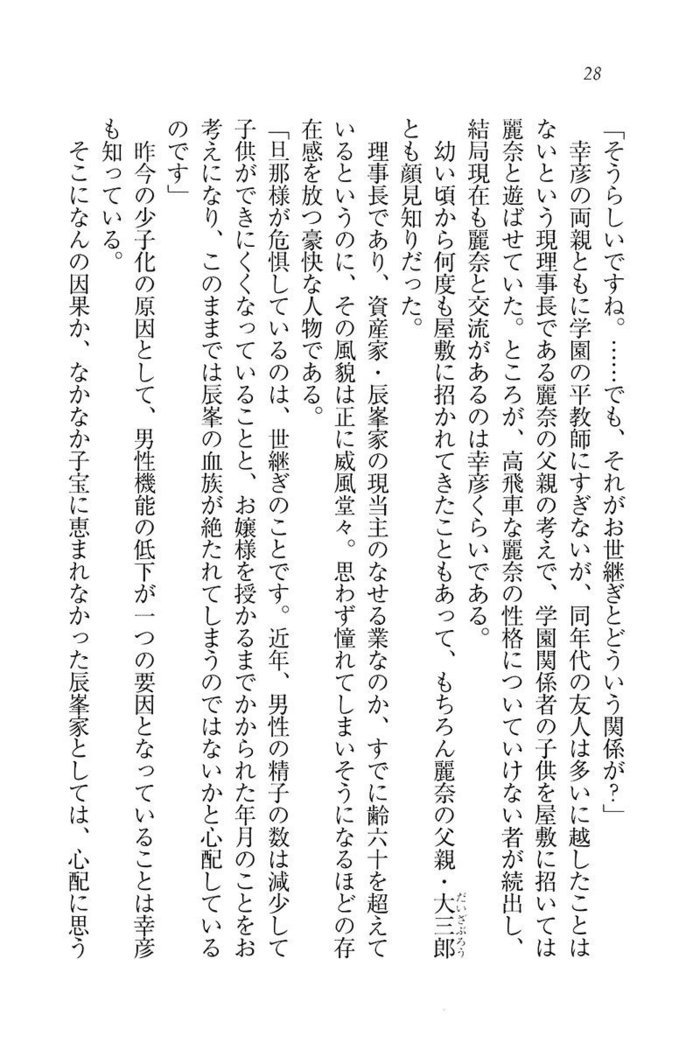 28
「そうらしいですね。……でも、それがお世継ぎとどういう関係が?」
　幸彦の両親ともに学園の平教師にすぎないが、同年代の友人は多いに越したことは
ないという現理事長である麗奈の父親の考えで、学園関係者の子供を屋敷に招いては
麗奈と遊ばせていた。ところが、高飛車な麗奈の性格についていけない者が続出し、
結局現在も麗奈と交流があるのは幸彦くらいである。
　幼い頃から何度も屋敷に招かれてきたこともあって、もちろん麗奈の父親・大三郎
だいざぶろう
とも顔見知りだった。
　理事長であり、資産家・辰峯家の現当主のなせる業なのか、すでに齢六十を超えて
いるというのに、その風貌は正に威風堂々。思わず憧れてしまいそうになるほどの存
在感を放つ豪快な人物である。
「旦那様が危惧しているのは、世継ぎのことです。近年、男性の精子の数は減少して
子供ができにくくなっていることと、お嬢様を授かるまでかかられた年月のことをお
考えになり、このままでは辰峯の血族が絶たれてしまうのではないかと心配している
のです」
　昨今の少子化の原因として、男性機能の低下が一つの要因となっていることは幸彦
も知っている。
　そこになんの因果か、なかなか子宝に恵まれなかった辰峯家としては、心配に思う